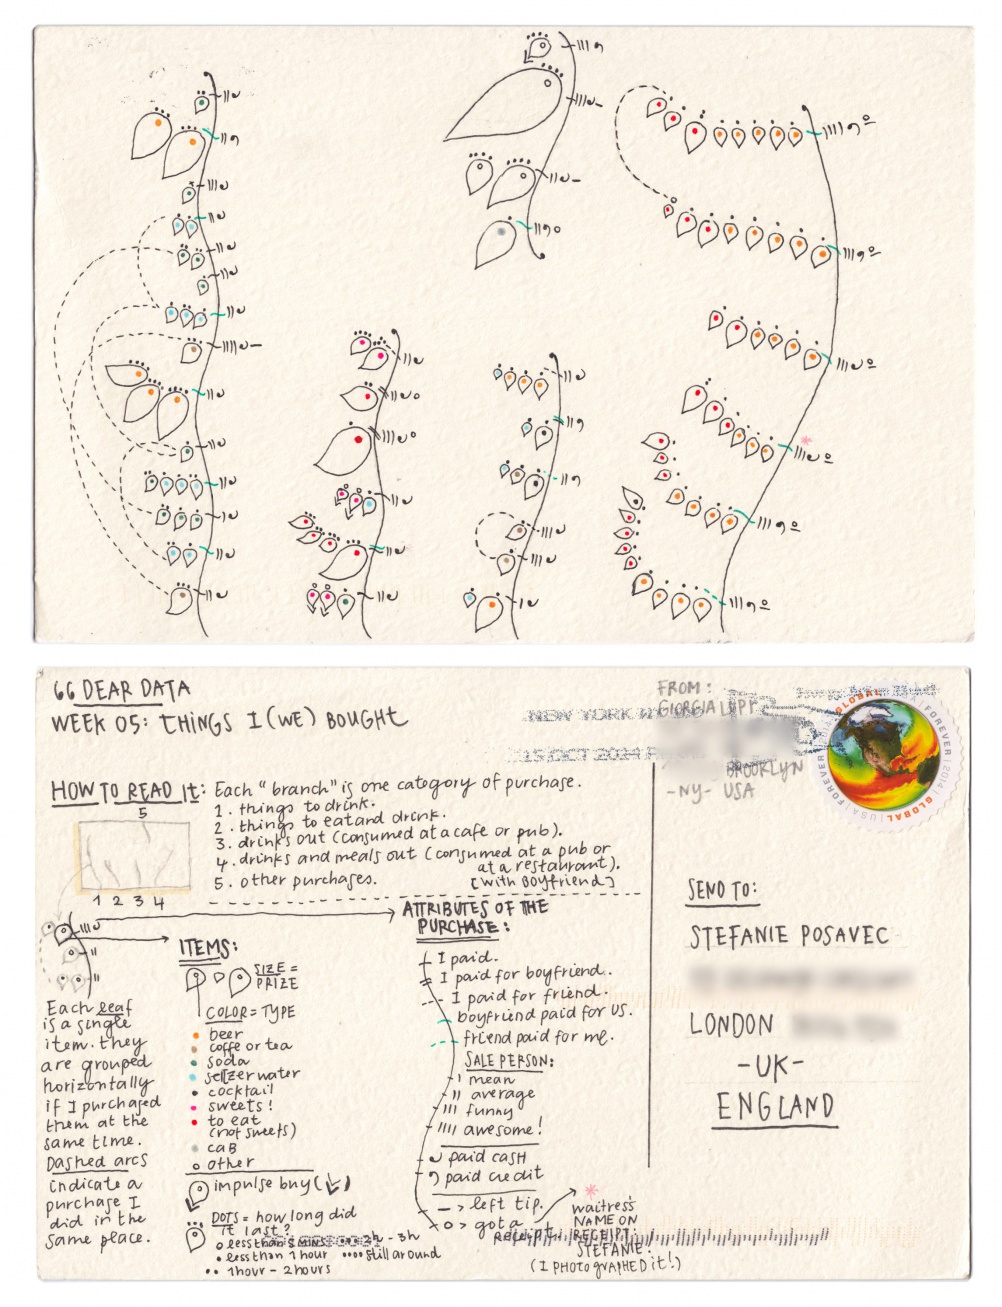 66 DEAR DATA
WEEK 05: THINGS I (WE) BOUGHT
HOW TO READ IT: Each "branch" is one category of purchase.
1. things to drink.
2. things to eat and drink.
3. drinks out (consumed at a cafe or pub).
4. drinks and meals out (consumed at a pub or
at a restaurant).
5. other purchases. [with BOYFRIEND]
5
1 2 3 4
Each leaf
is a single
item. they
are grouped
horizontally
if I purchased
them at the
same time.
Dashed arcs
indicate a
purchase I
did in the
same place.
ITEMS:
SIZE =
PRIZE
COLOR = TYPE
beer
coffe or tea
soda
seltzer water
cocktail
sweets!
to eat
(not sweets)
cab
other
impulse buy (
DOTS = how long did
it last?
less than 5 MINS
2h - 3h
less than 1 hour
still around
1 hour - 2 hours
ATTRIBUTES OF THE
PURCHASE:
I paid.
I paid for boyfriend.
I paid for friend.
boyfriend paid for us.
friend paid for me.
SALE PERSON:
mean
average
funny
awesome!
paid cash
paid credit
— > left tip.
o > got a
receipt.
waitress's
NAME ON
RECEIPT:
STEFANIE!
(I PHOTOGRAPHED it!)
FROM:
GIORGIA LUPI
BROOKLYN
-NY- USA
NEW YORK
15 OCT 2014
GLOBAL
FOREVER
2014
GLOBAL
USA
FOREVER
SEND TO:
STEFANIE POSAVEC
LONDON
-UK-
ENGLAND